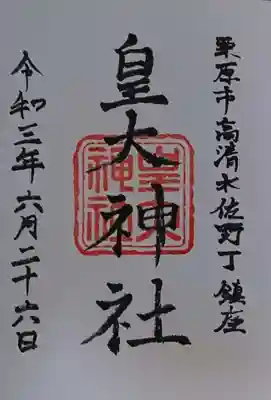 栗原市高清水佐野丁鎮座
皇大神社
皇大神社
令和三年六月二十六日